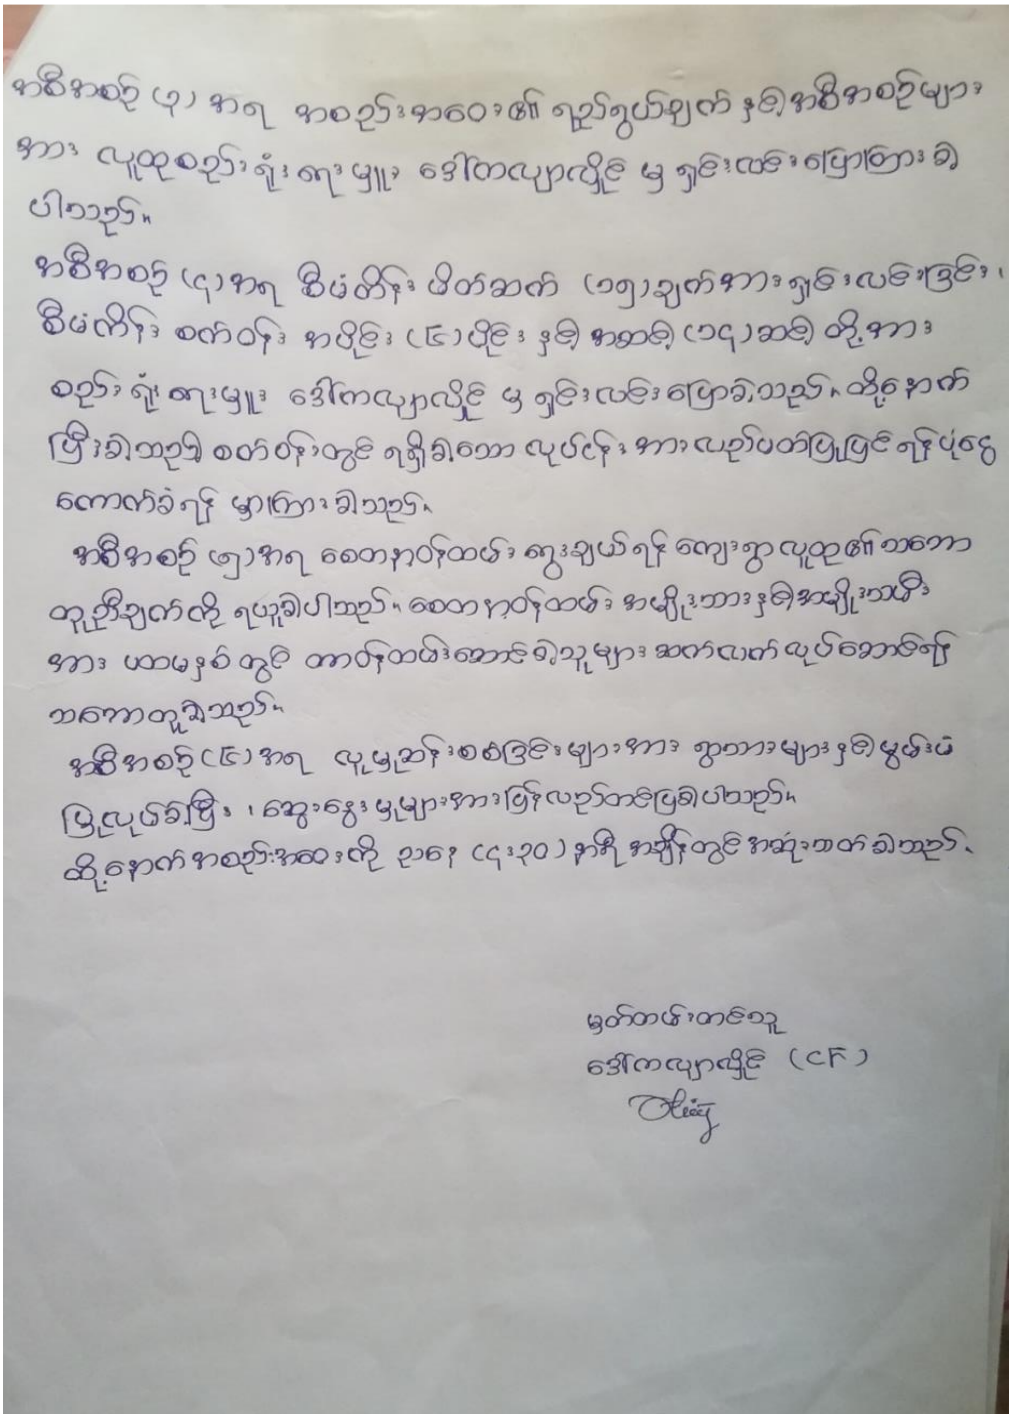 အစီအစဉ် (၃) အရ အစည်းအဝေး၏ ရည်ရွယ်ချက် နှင့် အစီအစဉ်များ
အား လူထုစည်းရုံးရေးမှူး ဒေါ်ကလျာလှိုင် မှ ရှင်းလင်းပြောကြားခဲ့
ပါသည်။
အစီအစဉ် (၄) အရ စီမံကိန်း ဖိတ်ဆက် (၁၅) ချက်အား ရှင်းလင်းခြင်း၊
စီမံကိန်း စက်ဝန်း အပိုင်း (၆) ပိုင်း နှင့် အဆင့် (၁၄) ဆင့် တို့အား
စည်းရုံးရေးမှူး ဒေါ်ကလျာလှိုင် မှ ရှင်းလင်းပြောခဲ့သည်။ ထို့နောက်
ပြီးခဲ့သည့် စက်ဝန်းတွင် ရရှိခဲ့သော လုပ်ငန်းအား လည်ပတ်ပြုပြင်ရန်ပုံငွေ
ကောက်ခံရန် မှာကြားခဲ့သည်။
အစီအစဉ် (၅) အရ စေတနာ့ဝန်ထမ်း ရွေးချယ်ရန် ကျေးရွာလူထု၏ သဘော
တူညီချက်ကို ရယူခဲ့ပါသည်။ စေတနာ့ဝန်ထမ်း အမျိုးသားနှင့် အမျိုးသမီး
အား ပထမနှစ်တွင် တာဝန်ထမ်းဆောင်ခဲ့သူများ ဆက်လက်လုပ်ဆောင်ရန်
သဘောတူခဲ့သည်။
အစီအစဉ် (၆) အရ လူမှုဆန်းစစ်ခြင်းများအား ရွာသားများနှင့် မွမ်းမံ
ပြုလုပ်ခဲ့ပြီး ၊ ဆွေးနွေးမှုများအား ပြန်လည်တင်ပြခဲ့ပါသည်။
ထို့နောက် အစည်းအဝေးကို ညနေ (၄:၃၀) နာရီ အချိန်တွင် အဆုံးသတ်ခဲ့သည်။
မှတ်တမ်းတင်သူ
ဒေါ်ကလျာလှိုင် (CF)